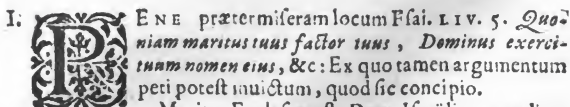 I. PENE prætermiseram locum Esai. LIV. 5. Quo-
niam maritus tuus factor tuus, Dominus exerci-
tuum nomen eius, &c: Ex quo tamen argumentum
peti potest inuictum, quod sic concipio.